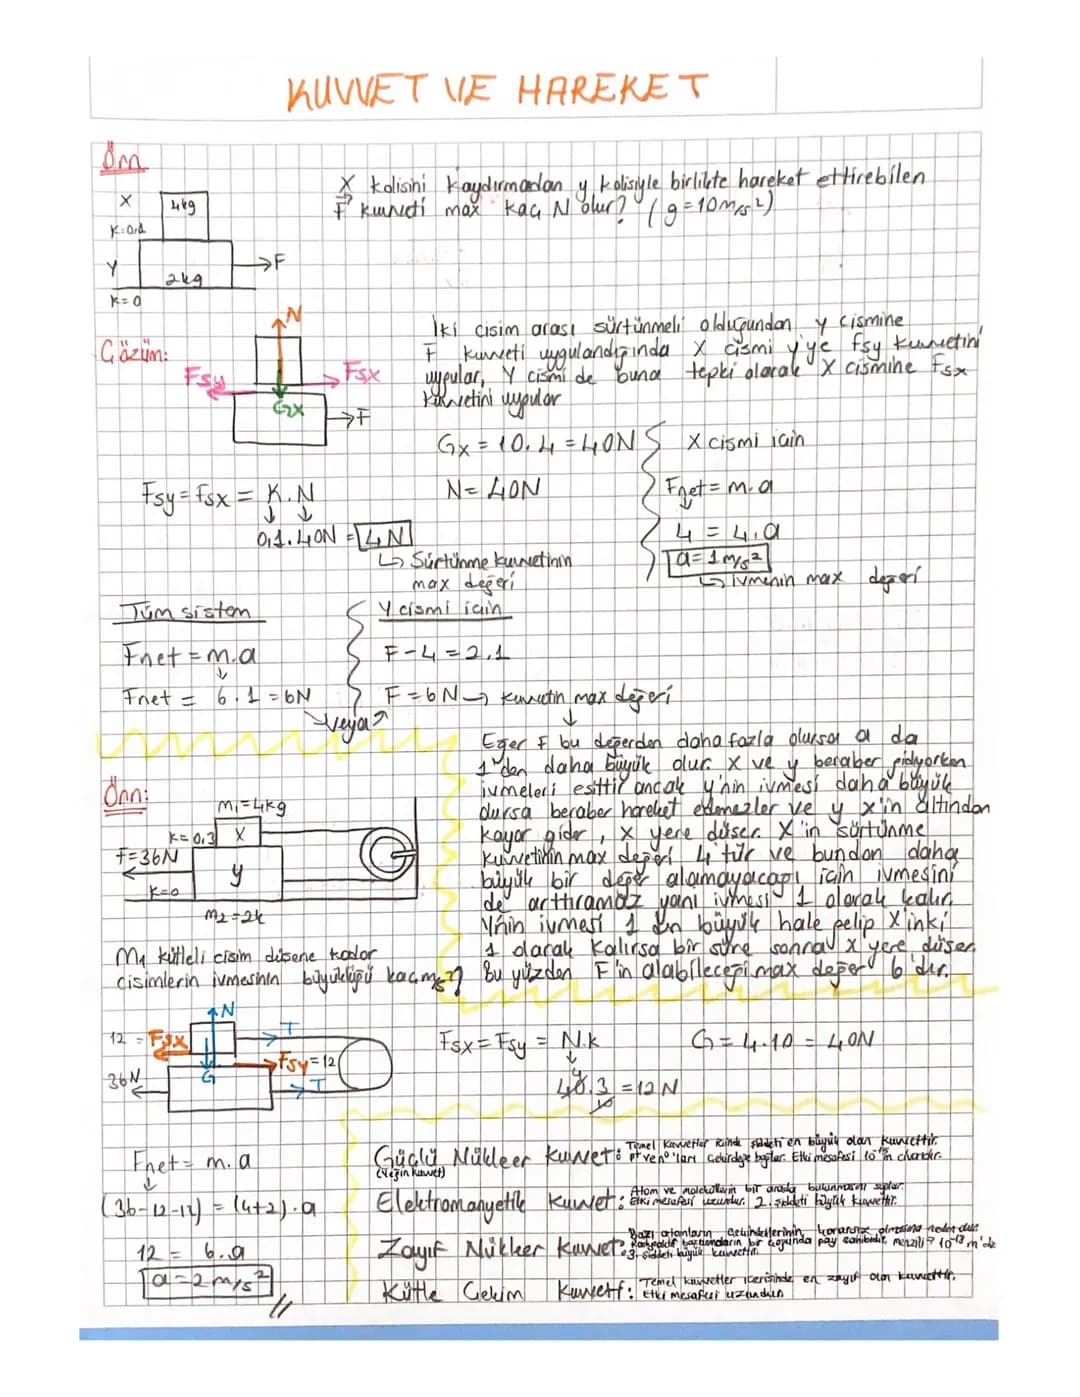 KUVVET VE HAREKET
Örn
X kolisini kaydırmadan y kolisiyle birlikte hareket ettirebilen
F kuvveti max kaç N olur? (g=10m/s²)
X
4kg
K=0,1
Y
2kg
F
K=0
Çözüm:
N
Fsy
Fsx
Gx
F
İki cisim arası sürtünmeli olduğundan y cismine
F kuvveti uygulandığında X cismi y'ye fsy kuvvetini
uygular, Y cismi de buna tepki olarak X cismine Fsx
kuvvetini uygular
Gx = 10.4 = 40N
N = 40N
X cismi için
Fnet = m.a
4 = 4.a
a = 1 m/s²
ivmenin max değeri
Fsy = fsx = K.N
0,1.40N = 4N
Sürtünme kuvvetinin
max değeri
Tüm sistem
Fnet = m.a
Fnet = 6.1 = 6N
veya
Y cismi için
F-4 = 2.1
F = 6N → kuvvetin max değeri
Eğer F bu değerden daha fazla olursa a da
1'den daha büyük olur. X ve y beraber gidiyorken
ivmeleri eşittir ancak y'nin ivmesi daha büyük
olursa beraber hareket edemezler ve y x'in altından
kayar gider, x yere düşer. X'in sürtünme
kuvvetinin max değeri 4'tür ve bundan daha
büyük bir değer alamayacağı için ivmesini
de arttıramaz yani ivmesi 1 olarak kalır.
Y'nin ivmesi 1 den büyük hale gelip X'inki
1 olarak kalırsa bir süre sonra x yere düşer.
Bu yüzden F'in alabileceği max değer 6'dır.
Örn:
m₁=4kg
K=0,3
X
F=36N
y
K=0
m₂=2k
M₁ kütleli cisim düşene kadar
cisimlerin ivmesinin büyüklüğü kaç m/s²?
N
12 = Fsx
T
Fsy=12
36N
G
T
Fsx = Fsy = N.k
40.3/10 = 12N
G = 4.10 = 40N
Fnet = m.a
(36-12-12) = (4+2).a
12 = 6.a
a = 2 m/s²
Güçlü Nükleer Kuvvet: Temel Kuvvetler içinde şiddeti en büyük olan kuvvettir.
(Yeğin kuvvet) p⁺ ve n⁰'ları çekirdeğe bağlar. Etki mesafesi 10⁻¹⁵m civarıdır.
Elektromanyetik Kuvvet: Atom ve moleküllerin bir arada bulunmasını sağlar.
Etki mesafesi uzundur. 2. şiddeti büyük kuvvettir.
Zayıf Nükleer Kuvvet: Bazı atomların çekirdeklerinin kararsız olmasına neden olur.
Radyoaktif bozunmaların bir çoğunda pay sahibidir. menzili 10⁻¹⁸ m'dir
3. şiddeti büyük kuvvettir.
Kütle Çekim Kuvveti: Temel kuvvetler içerisinde en zayıf olan kuvvettir.
Etki mesafesi uzundur